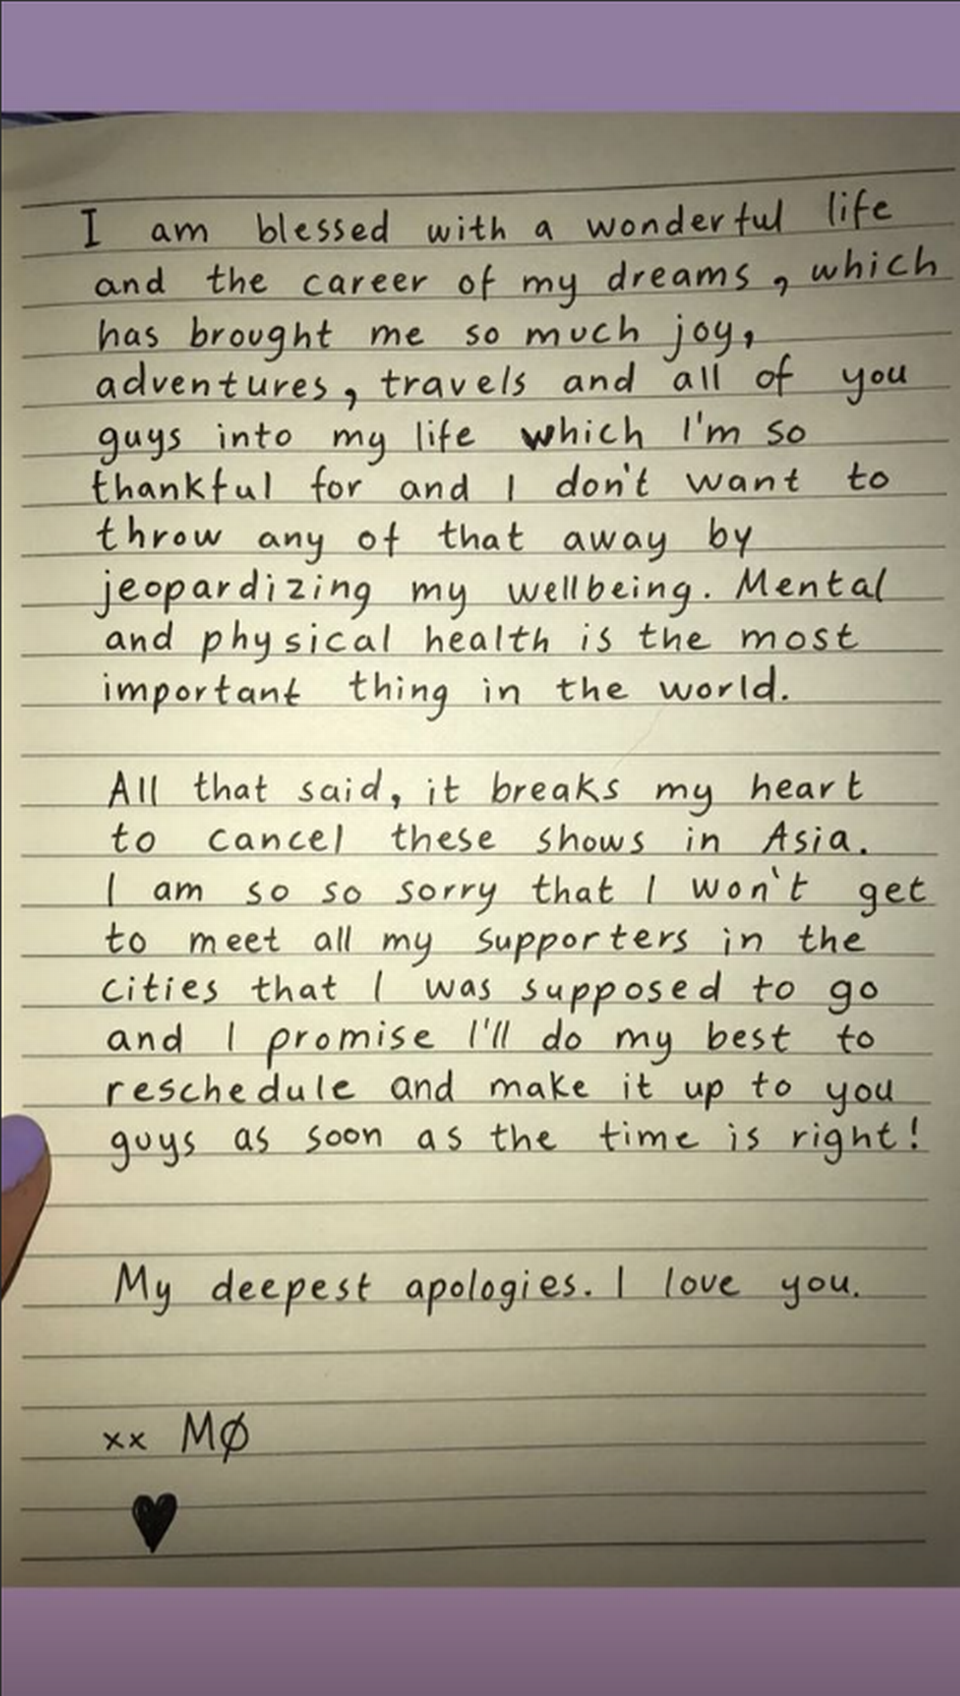 I am blessed with a wonderful life
and the career of my dreams, which
has brought me so much joy,
adventures, travels and all of you
guys into my life which I'm so
thankful for and I don't want to
throw any of that away by
jeopardizing my wellbeing. Mental
and physical health is the most
important thing in the world.
All that said, it breaks my heart
to cancel these shows in Asia.
I am so so sorry that I won't get
to meet all my supporters in the
cities that I was supposed to go
and I promise I'll do my best to
reschedule and make it up to you
guys as soon as the time is right!
My deepest apologies. I love you.
xx MØ